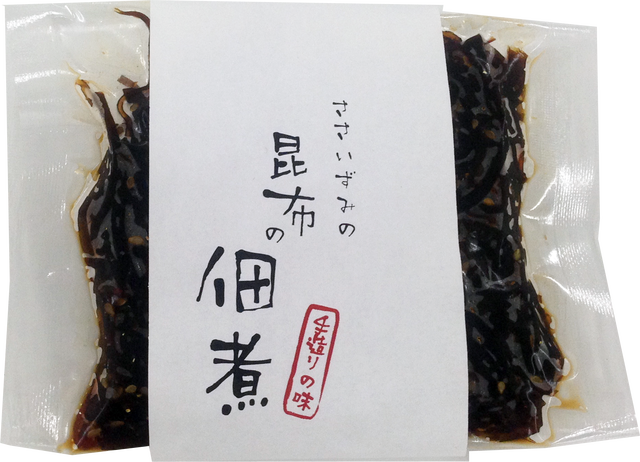 ささいずみの
昆布の
佃煮
手造りの味